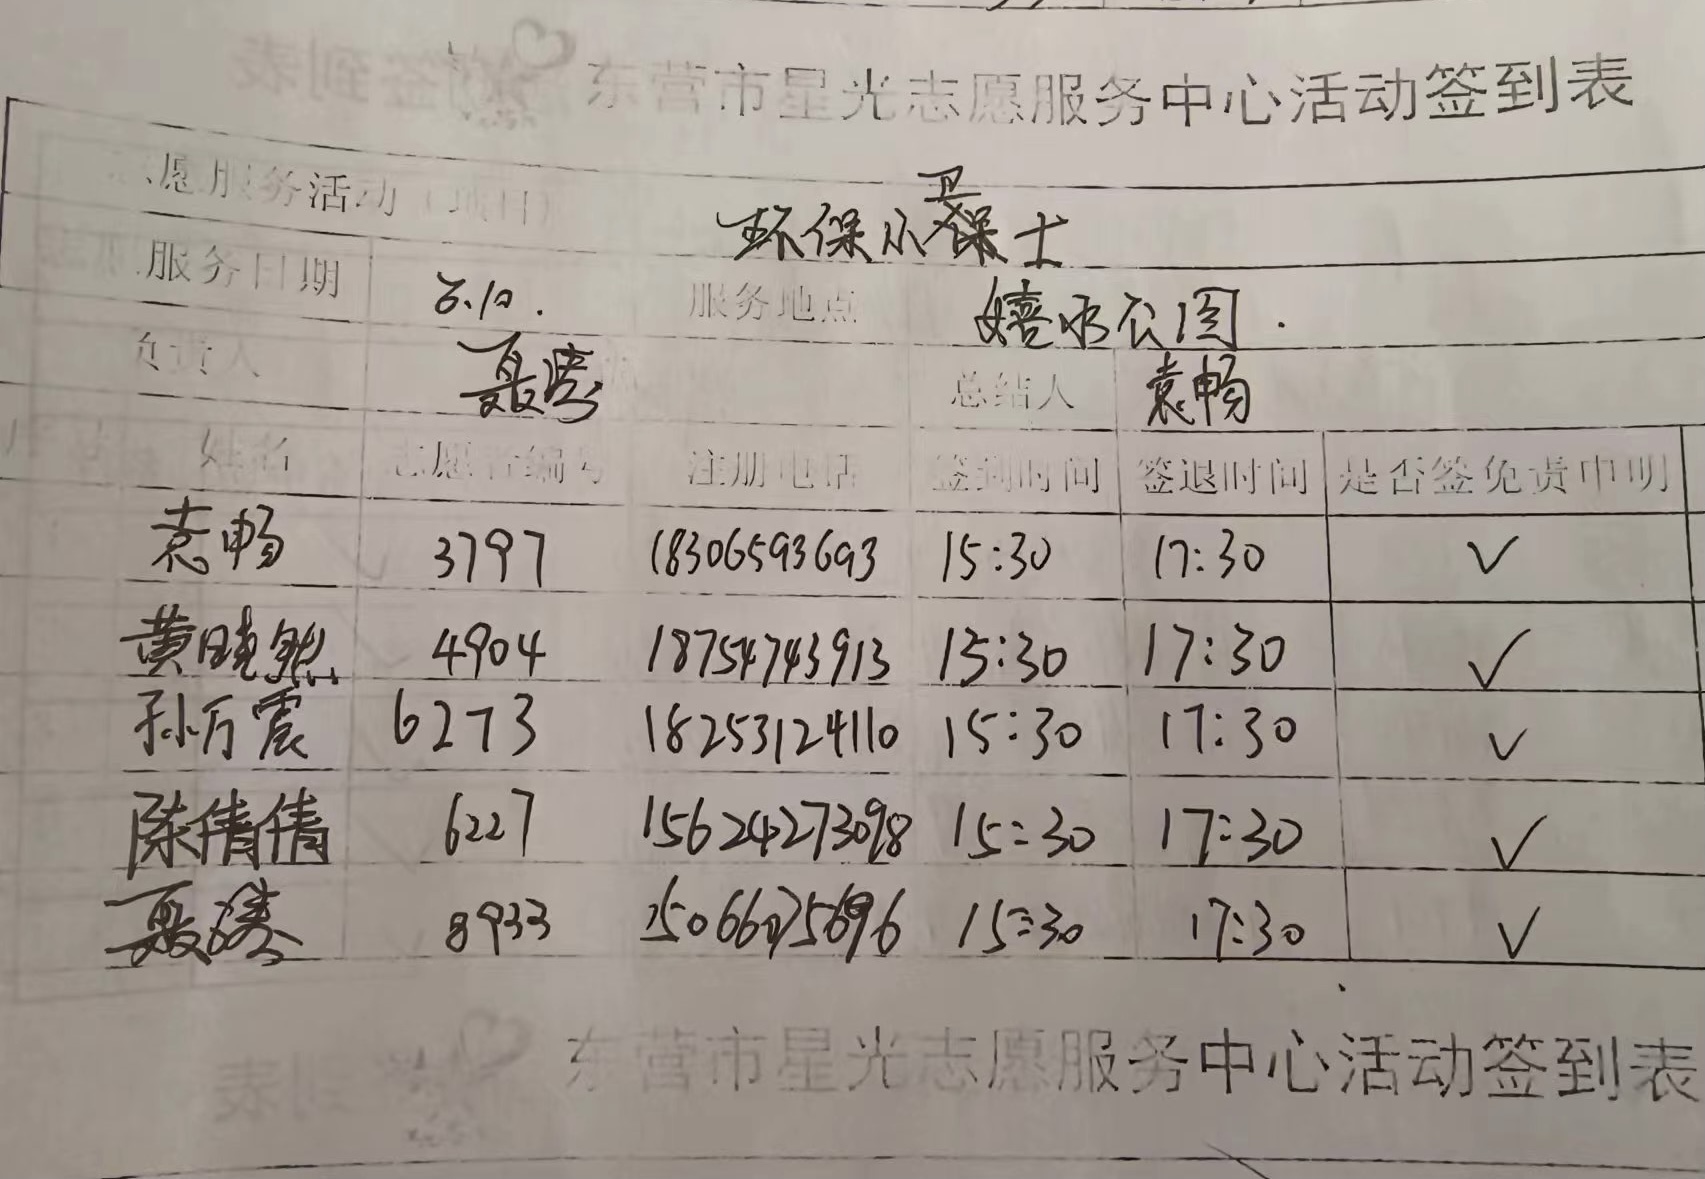 东营市星光志愿服务中心活动签到表
志愿服务活动（项目） 环保小卫士
服务日期 6.10. 服务地点 嬉水公园.
负责人 总结人 袁畅
姓名 志愿者编号 注册电话 签到时间 签退时间 是否签免责申明
袁畅 3797 18306593693 15:30 17:30 ✓
黄晓然 4904 18754743913 15:30 17:30 ✓
孙万震 6273 18253124110 15:30 17:30 ✓
陈倩倩 6227 15624273098 15:30 17:30 ✓
8933 15:30 17:30 ✓
东营市星光志愿服务中心活动签到表